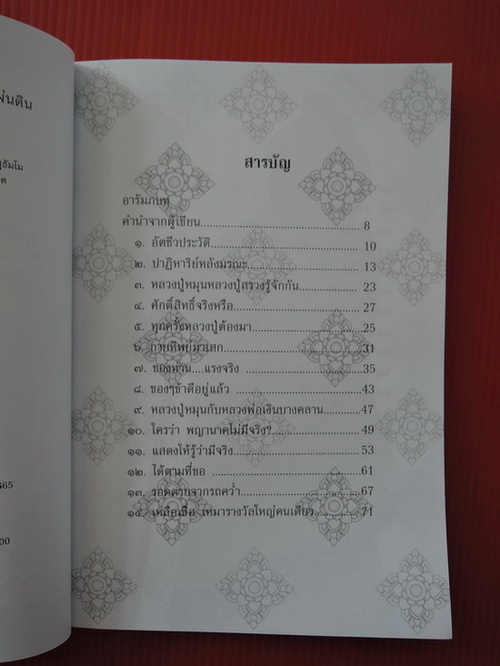 ผ่นดิน
ฐธัมโม
65
00
สารบัญ
อารัมภบท
คำนำจากผู้เขียน.................................................. 8
๑. อัตชีวประวัติ.................................................. 10
๒. ปาฏิหาริย์หลังมรณะ......................................... 13
๓. หลวงปู่หมุนหลวงปู่สรวงรู้จักกัน ......................... 23
๔. ศักดิ์สิทธิ์จริงหรือ............................................ 27
๕. ทุกครั้งหลวงปู่ต้องมา........................................ 25
๖. กายทิพย์มาเสก............................................... 31
๗. ของท่าน....แรงจริง ......................................... 35
๘. ของๆข้าดีอยู่แล้ว ............................................ 43
๙. หลวงปู่หมุนกับหลวงพ่อเงินบางคลาน.................... 47
๑๐. ใครว่า พญานาคไม่มีจริง?................................. 49
๑๑. แสดงให้รู้ว่ามีจริง........................................... 53
๑๒. ได้ตามที่ขอ .................................................. 61
๑๓. รอดตายจากรถคว่ำ......................................... 67
๑๔. เหลือเชื่อ เหมารางวัลใหญ่คนเดียว ................... 71